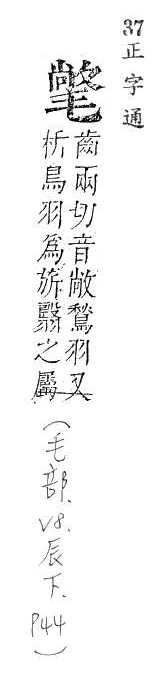 37 正字通
氅
齒兩切音敞鶖羽又
析鳥羽爲旂翳之屬
(毛部.V8.辰下.P44)